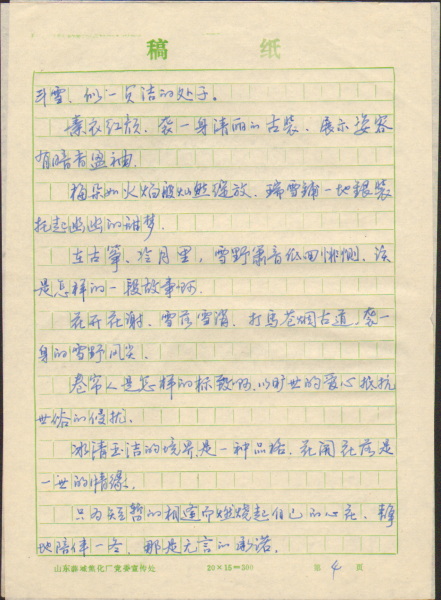 稿 纸
斗雪、似一贞洁的处子。
素衣红颜、袭一身清丽的古装、展示姿容
有暗香盈袖.
梅朵如火焰般灿然绽放、瑞雪铺一地银装
托起幽幽的甜梦.
在古筝、冷月里,雪野箫音低回悱恻、该
是怎样的一段故事呵.
花开花谢、雪落雪消、打马苍烟古道、袭一
身的雪野
卷帘人是怎样的标致呵、以旷世的爱心抵抗
世俗的侵扰.
冰清玉洁的境界是一种品格、花开花落是
一世的情缘.
只为短暂的相逢而燃烧起自己的心花、静
地陪伴一冬、那是无言的承诺.
山东 化厂党委宣传处 20×15=300 第 4 页